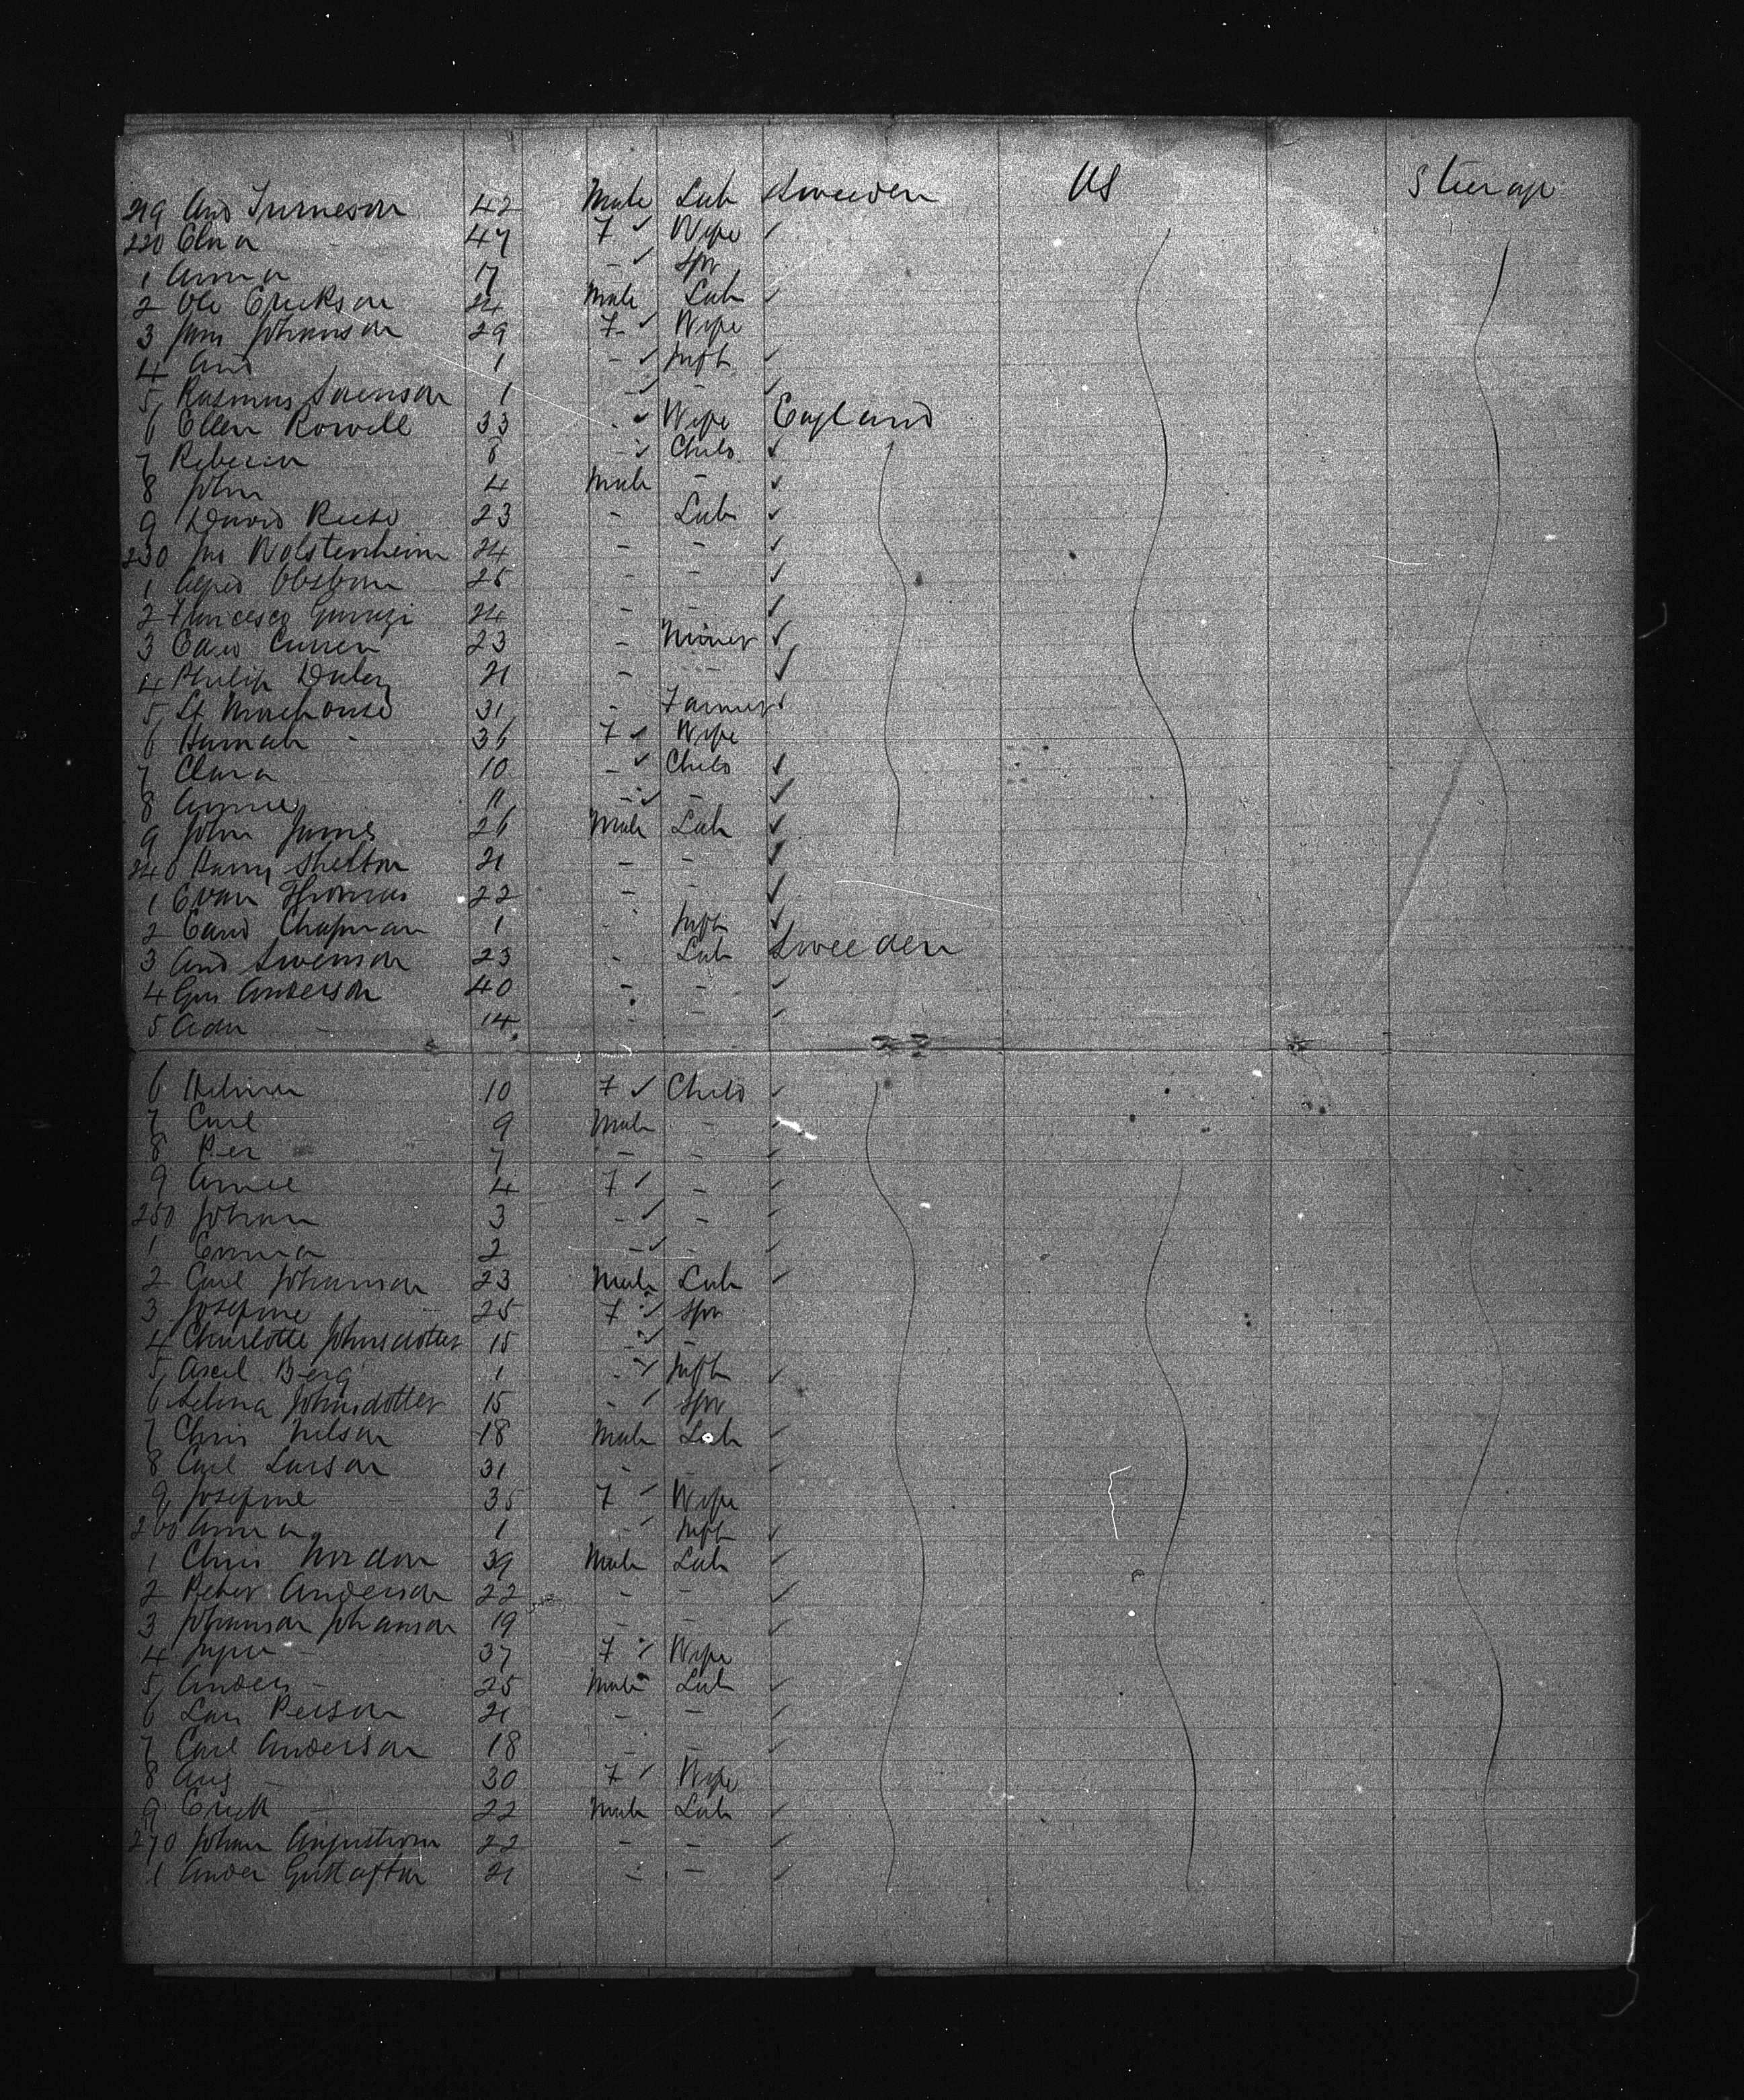 219 And Turneson 42 Male Lab Sweeden US Steerage
220 Elna 47 F ✓ Wife ✓
1 Anna 17 - ✓ Spr
2 Ole Erickson 24 Male Lab ✓
3 Johanson 29 F ✓ Wife
4 And 1 - ✓ Inft ✓
5 Rasmus Svenson 1 ✓ - ✓
6 Ellen Rowell 33 ✓ Wife England
7 Rebecca 8 - ✓ Child ✓
8 John 4 Male - ✓
9 David Reese 23 - Lab ✓
230 Jno Wolstenheim 24 - - ✓
1 Alfred 25 - - ✓
2 Francesco 24 - - ✓
3 Curren 23 - Miner ✓
4 Philip Daley 21 - - ✓
5 Morehouse 31 - Farmer ✓
6 Hannah - 36 F ✓ Wife
7 Clara 10 - ✓ Child ✓
8 Annie 11 - ✓ - ✓
9 John James 26 Male Lab ✓
240 Harry Shelton 21 - - ✓
1 Evan Thomas 22 - - ✓
2 Chapman 1 - Inft ✓
3 And Swenson 23 - Lab Sweeden
4 Gus Anderson 40 - - ✓
5 - 14 - - ✓
6 10 F ✓ Child ✓
7 Carl 9 Male - ✓
8 Per 7 - - ✓
9 4 F ✓ - ✓
250 Johan 3 - ✓ - ✓
1 Emma 2 - ✓ - ✓
2 Carl Johanson 23 Male Lab ✓
3 Josefine 25 F ✓ Spr
4 Charlotte Johnsdotter 15 - ✓ -
5 Axel Berg 1 - ✓ Inft ✓
6 Selma Johnsdotter 15 - ✓ Spr
7 Chris Nelson 18 Male Lab ✓
8 Carl Larson 31 - - ✓
9 Josefine - 35 F ✓ Wife
260 Anna 1 - ✓ Inft ✓
1 Chris Nordon 39 Male Lab ✓
2 Peter Anderson 22 - - ✓
3 Johanson Johanson 19 - - ✓
4 - 37 F ✓ Wife
5 Anders - 25 Male Lab ✓
6 Lars Person 21 - - ✓
7 Carl Anderson 18 - - ✓
8 Aug - 30 F ✓ Wife
9 Erick - 22 Male Lab ✓
270 Johan 22 - - ✓
1 Ander Gustafson 21 - - ✓